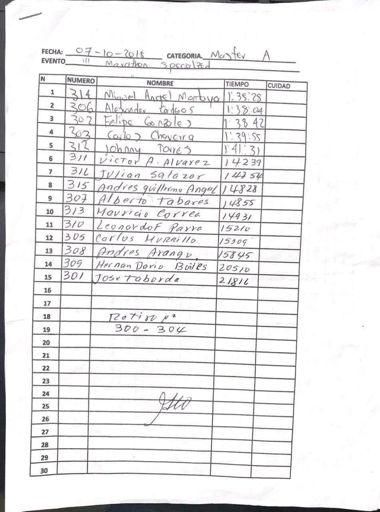 FECHA: 07-10-2018 CATEGORIA. Master A
EVENTO III Marathon Specialized
N NUMERO NOMBRE TIEMPO CUIDAD
1 314 Miguel Angel 1:35:28
2 306 Alexander 1:38:04
3 302 Felipe Gonzalez 1:38:42
4 303 Carlos Chaveira 1:39:55
5 312 Johnny Torres 1:41:31
6 311 Victor A. Alvarez 14239
7 Julian Salazar 14754
8 315 Andres guillermo Angel 14828
9 307 Alberto Tabares 14855
10 313 Mauricio Correa 14931
11 310 Leonardo F Parra 15210
12 305 Carlos Murillo 15309
13 308 Andres Arango 15845
14 309 Hernan Dario Builes 20510
15 301 Jose Taborda 21816
16
17
18 Retiro #
19 300 - 304
20
21
22
23
24
25
26
27
28
29
30